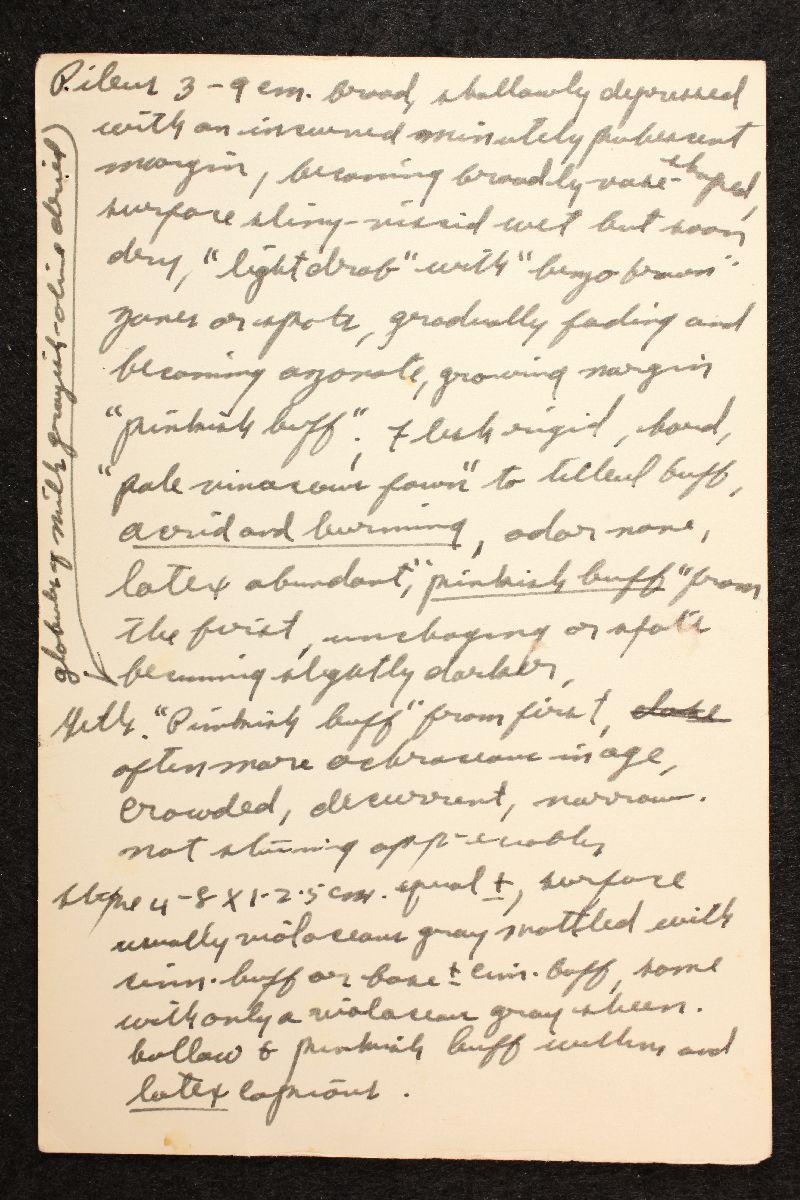 Pileus 3-9 cm. broad, shallowly depressed
with an incurved minutely pubescent
margin, becoming broadly vase-shaped,
surface slimy-viscid wet but soon
dry, "light drab" with "benzo brown"
zones or spots, gradually fading and
becoming azonate, growing margin
"pinkish buff". Flesh rigid, hard,
"pale vinaceous fawn" to tilleul buff,
acrid and burning, odor none,
latex abundant, "pinkish buff" from
the first, unchaging or spots
becoming slightly darker,
globules of milk grayish-olive dried
Gills. "Pinkish buff" from first, close
often more ochraceous in age,
crowded, decurrent, narrow.
not staining appreciably
stipe 4-8 X 1-2.5 cm. equal ±, surface
usually violaceous gray mottled with
cinn. buff or base ± cin. buff, some
with only a violaceous gray sheen.
hollow & pinkish buff within and
latex copious.